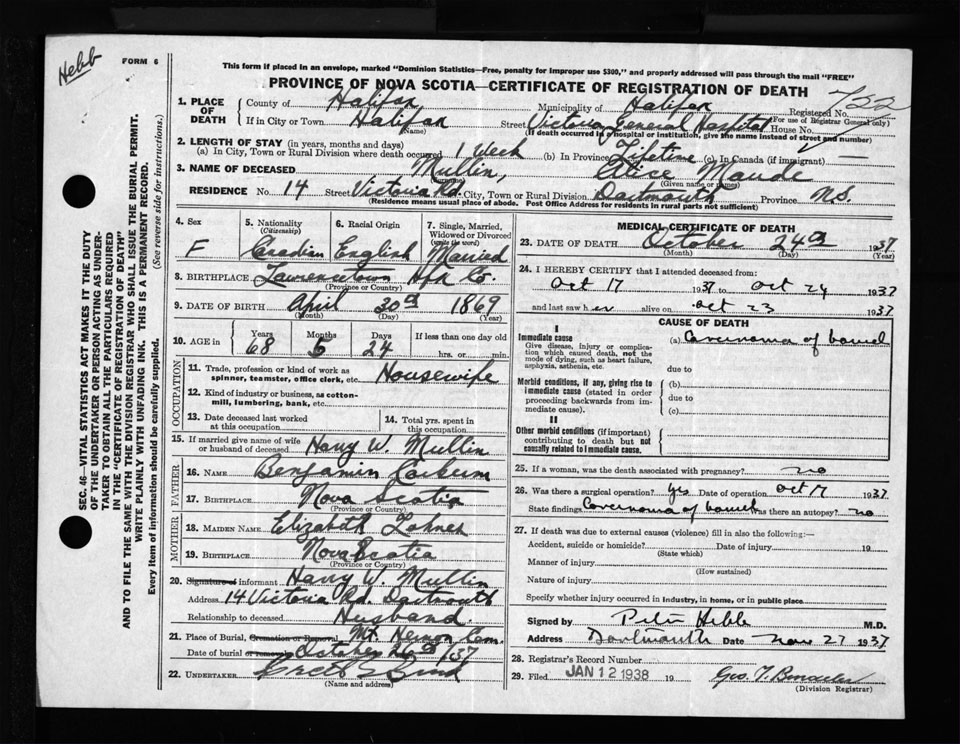 Hebb
FORM 6
This form if placed in an envelope, marked "Dominion Statistics—Free, penalty for improper use $300," and properly addressed will pass through the mail "FREE"
PROVINCE OF NOVA SCOTIA—CERTIFICATE OF REGISTRATION OF DEATH
SEC. 46—VITAL STATISTICS ACT MAKES IT THE DUTY
OF THE UNDERTAKER OR PERSON ACTING AS UNDER-
TAKER TO OBTAIN ALL THE PARTICULARS REQUIRED
IN THE "CERTIFICATE OF REGISTRATION OF DEATH"
AND TO FILE THE SAME WITH THE DIVISION REGISTRAR WHO SHALL ISSUE THE BURIAL PERMIT.
WRITE PLAINLY WITH UNFADING INK. THIS IS A PERMANENT RECORD.
Every item of information should be carefully supplied. (See reverse side for instructions.)
1. PLACE OF DEATH County of Halifax Municipality of Halifax Registered No. 722
(For use of Registrar General only)
If in City or Town Halifax Street Victoria General Hospital House No.
(Name) (If death occurred in hospital or institution, give the name instead of street and number)
2. LENGTH OF STAY (in years, months and days)
(a) In City, Town or Rural Division where death occurred 1 week (b) In Province Lifetime (c) In Canada (if immigrant) —
3. NAME OF DECEASED Mullin, Alice Maude
(Surname) (Given name or names)
RESIDENCE No. 14 Street Victoria Rd. City, Town or Rural Division Dartmouth Province N.S.
(Residence means usual place of abode. Post Office Address for residents in rural parts not sufficient)
4. Sex F
5. Nationality (Citizenship)
6. Racial Origin English
7. Single, Married, Widowed or Divorced (write the word) Married
8. BIRTHPLACE Lawrencetown Hfx Co.
(Province or Country)
9. DATE OF BIRTH April 30th 1869
(Month) (Day) (Year)
10. AGE in Years 68 Months 5 Days 24 If less than one day old
hrs. or min.
OCCUPATION
11. Trade, profession or kind of work as spinner, teamster, office clerk, etc. Housewife
12. Kind of industry or business, as cotton-mill, lumbering, bank, etc.
13. Date deceased last worked at this occupation
14. Total yrs. spent in this occupation
15. If married give name of wife or husband of deceased Harry W. Mullin
FATHER
16. NAME Benjamin
17. BIRTHPLACE Nova Scotia
(Province or Country)
MOTHER
18. MAIDEN NAME Elizabeth
19. BIRTHPLACE Nova Scotia
(Province or Country)
20. Signature of informant Harry W. Mullin
Address 14 Victoria Rd. Dartmouth
Relationship to deceased Husband
21. Place of Burial, Cremation or Removal Mt. Hermon Cem.
Date of burial or removal October 26th/37
22. UNDERTAKER
(Name and address)
MEDICAL CERTIFICATE OF DEATH
23. DATE OF DEATH October 24th 1937
(Month) (Day) (Year)
24. I HEREBY CERTIFY that I attended deceased from:
Oct 17 1937 to Oct 24 1937
and last saw her alive on Oct 23 1937
CAUSE OF DEATH
I
Immediate cause
Give disease, injury or complication which caused death, not the mode of dying, such as heart failure, asphyxia, asthenia, etc.
(a) of bowel
due to
Morbid conditions, if any, giving rise to immediate cause (stated in order proceeding backwards from immediate cause).
(b)
due to
(c)
II
Other morbid conditions (if important) contributing to death but not causally related to immediate cause.
25. If a woman, was the death associated with pregnancy? no
26. Was there a surgical operation? yes Date of operation Oct 17 1937
State findings of bowel Was there an autopsy? no
27. If death was due to external causes (violence) fill in also the following:—
Accident, suicide or homicide? Date of injury 19
(State which)
Manner of injury
(How sustained)
Nature of injury
Specify whether injury occurred in industry, in home, or in public place
Signed by M.D.
Address Dartmouth Date Nov 27 1937
28. Registrar's Record Number
29. Filed JAN 12 1938 19
(Division Registrar)